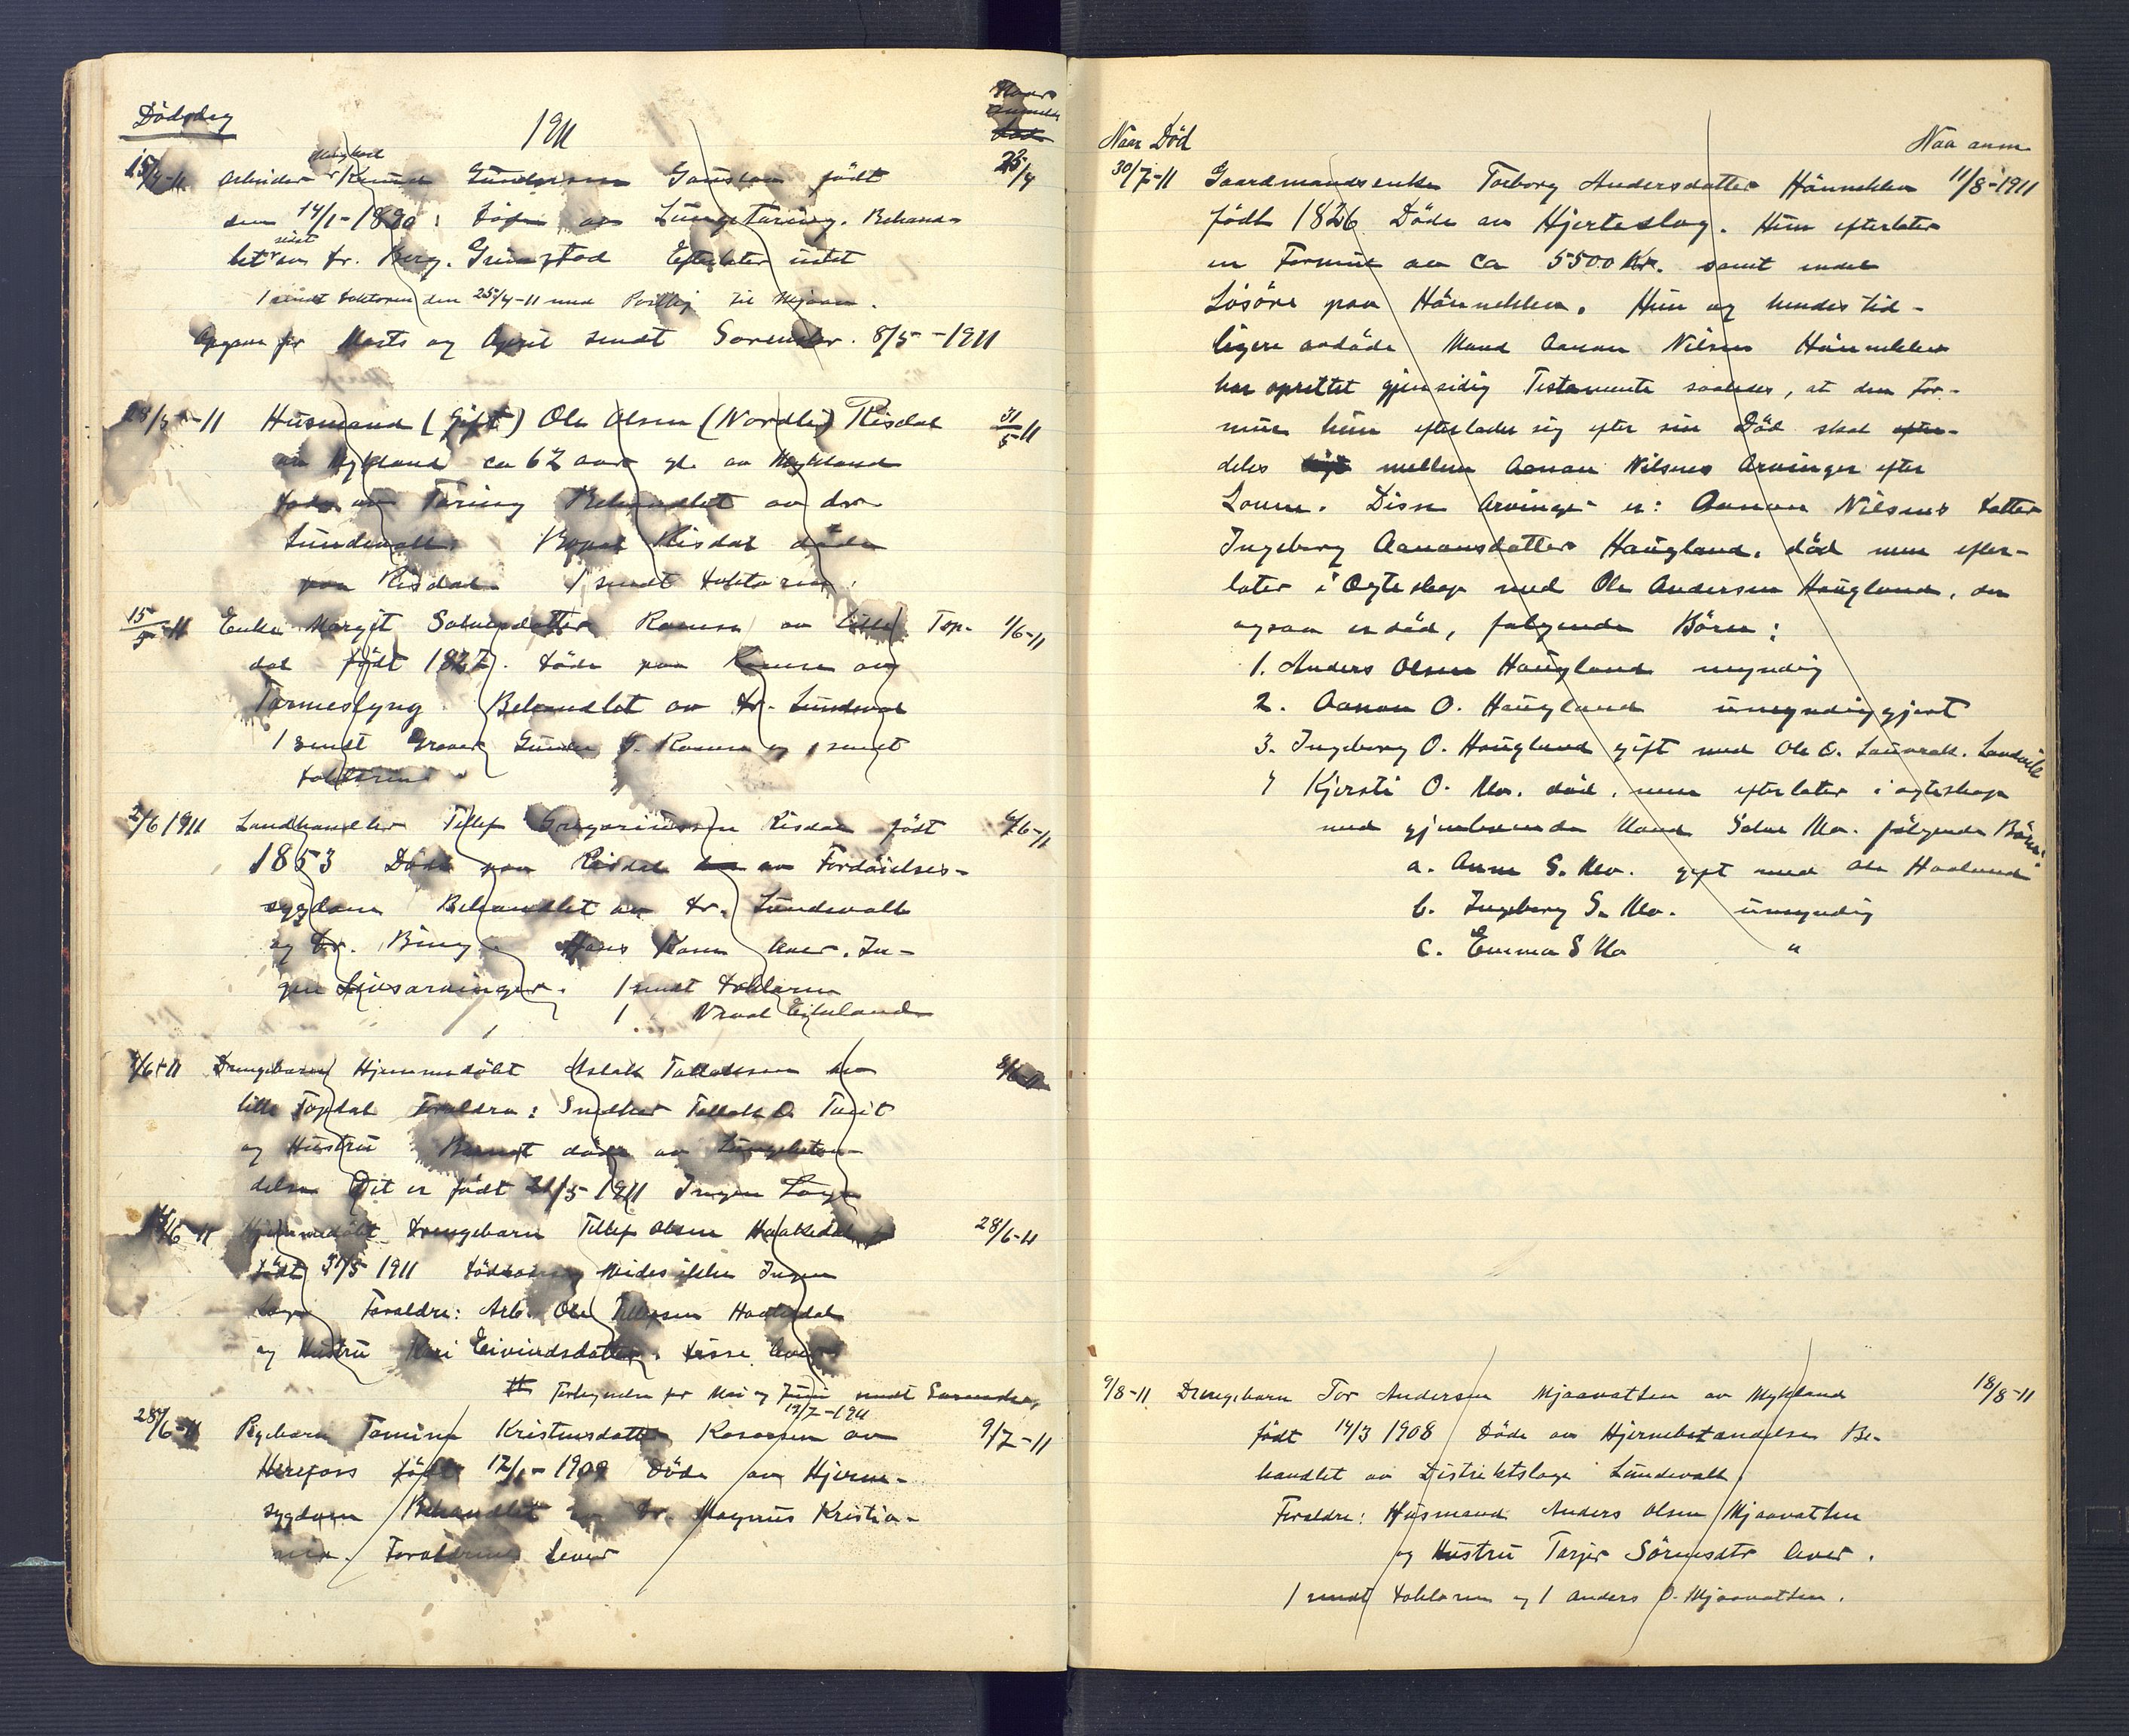 Dödsdag
1911
15/4-11 Arbeider Knud Gundersen Gauslaa födt 25/4
ungkarl
den 14/1-1890: döde av Lungetæring. Behand-
let sidst av Dr. Berg. Grimstad Efterlater intet
1 sendt doktoren den 25/4-11 med
Opgave for Marts og April sendt Sorenskr. 8/5-1911
28/5-11 Husmand (Gift) Ole Olsen (Nordli) Risdal 31/5 11
av Mykland ca 62 aar gl. av Mykland
döde av Tæring Behandlet av dr
Lundevall. Bopæl Risdal döde
paa Risdal. 1 sendt doktoren.
15/5-11 Enke Margit Ramse av Lille Top- 1/6-11
dal födt döde paa Ramse av
Tarmeslyng. Behandlet av Dr. Lundeval
1 sendt Gunder G. Ramse og 1 sendt
doktoren
2/6 1911 Landhandler Tellef Gregoriussen Risdal födt 6/6-11
1853 Död paa Risdal av Fordöielses-
sygdom Behandlet av Dr. Lundevall
og Dr. Bing. Hans Kone lever. In-
gen Livsarvinger. 1 sendt doktoren
1 " Eikeland
Drengebarn Hjemmedöbt Aslak Tallaksen av
lille Topdal Foreldre: Snedker Tallak O. Tveit
og Hustru Barnet döde av Lungebeten-
delse Det er födt 21/5 1911 Ingen Læge
Hjemmedöbt drengebarn Tellef Olsen Haakedal 28/6-11
födt 31/5 1911 dödsaarsag vides ikke Ingen
Læge Foreldre: Arb. Ole Tellefsen Haakedal
og Hustru Kari Eivindsdatter. disse lever
Fortegnelse for Mai og Juni sendt Sorenskr.
12/7-1911
28/6-11 Pigebarn Tomine Kristensdatter av 9/7-11
Herefoss födt 12/1-1909 Döde av Hjerne-
sygdom Behandlet av Dr. Magnus Kristia-
nia. Foreldrene lever
Naar Död Naa anm.
30/7-11 Gaardmandsenke Torborg Andersdatter Hänneklev 11/8-1911
födt 1826 Döde av Hjerteslag. Hun efterlater
en Formue av ca 5500 Kr. samt endel
Lösöre paa Hänneklev. Hun og hendes tid-
ligere avdöde Mand Aanon Nilsen Hänneklev
har oprettet gjensidig Testamente saaledes, at den For-
mue hun efterlader sig efter sin Död skal
deles mellem Aanon Nilsens Arvinger efter
Loven. Disse Arvinger er: Aanon Nilsens datter
Ingeborg Aanonsdatter Haugland. död men efter-
later i Ægteskap med Ole Andersen Haugland, der
ogsaa er död, fölgende Börn:
1. Anders Olsen Haugland myndig
2. Aanon O. Haugland umyndiggjort
3. Ingeborg O. Haugland gift med Ole O. Lauvrak. Landvik
4 Kjersti O. Mo. död, men efterlater i ægteskap
med gjenlevende Mand Salve Mo. fölgende Börn:
a. Anne S. Mo. gift med Ole Haaland
b. Ingeborg S. Mo. umyndig
c. Emma S Mo "
9/8-11 Drengebarn Tor Andersen Mjaavatten av Mykland 18/8-11
födt 14/3 1908 Döde av Hjernebetændelse Be-
handlet av Distriktslæge Lundevall.
Foreldre: Husmand Anders Olsen Mjaavatten
og Hustru Tarjer Sörensdtr lever.
1 sendt doktoren og 1 Anders O. Mjaavatten.